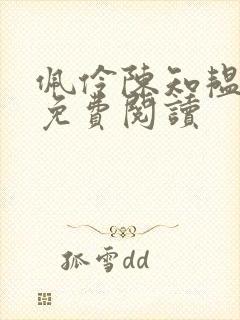 佩伶陳知韞
免費閱讀
孤雪dd